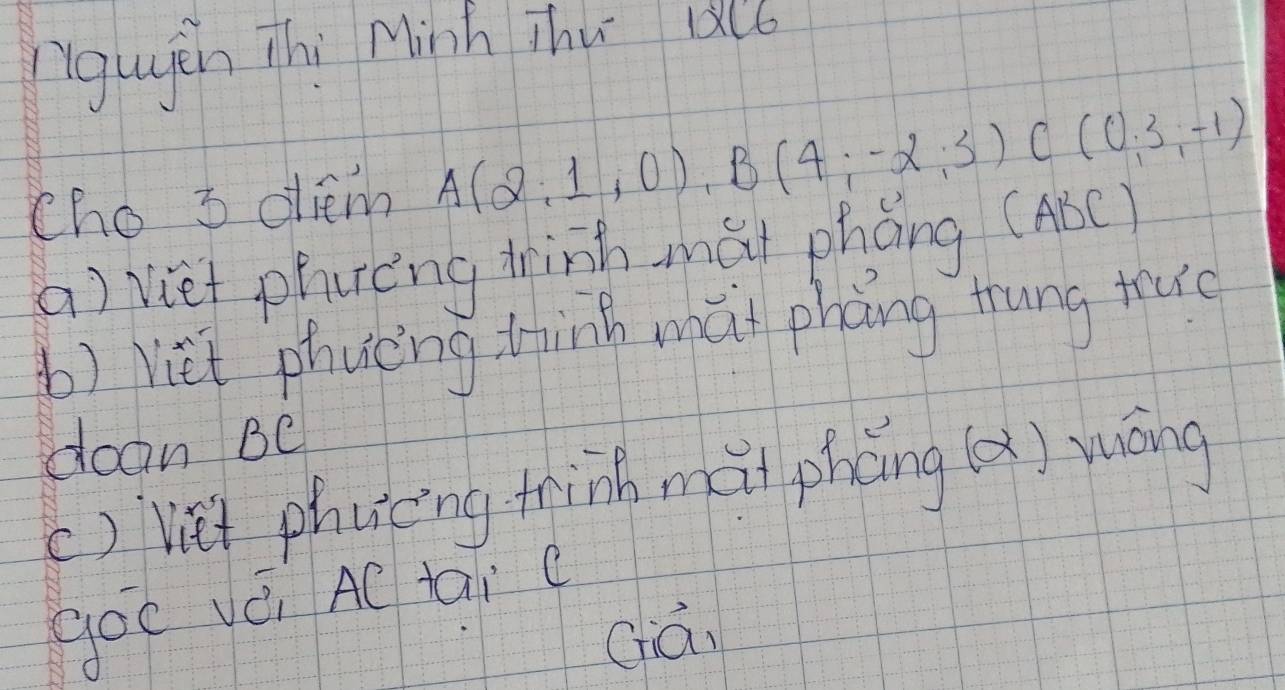 Nguyễn Thị Minh Thư 12C6
Cho 3 điểm A(2;1;0), B(4;-2;3) C(0;3;-1)
a) Viết phương trình mặt phẳng (ABC)
b) Viết phương trình mặt phẳng trung trực
đoạn BC
c) Viết phương trình mặt phẳng (α) vuông
góc với AC tại C
Giải